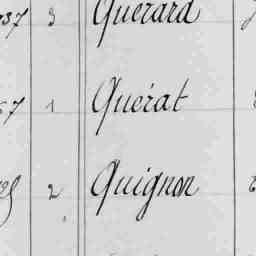 737 3 Querard
57 1 Quérat
2 Quignon